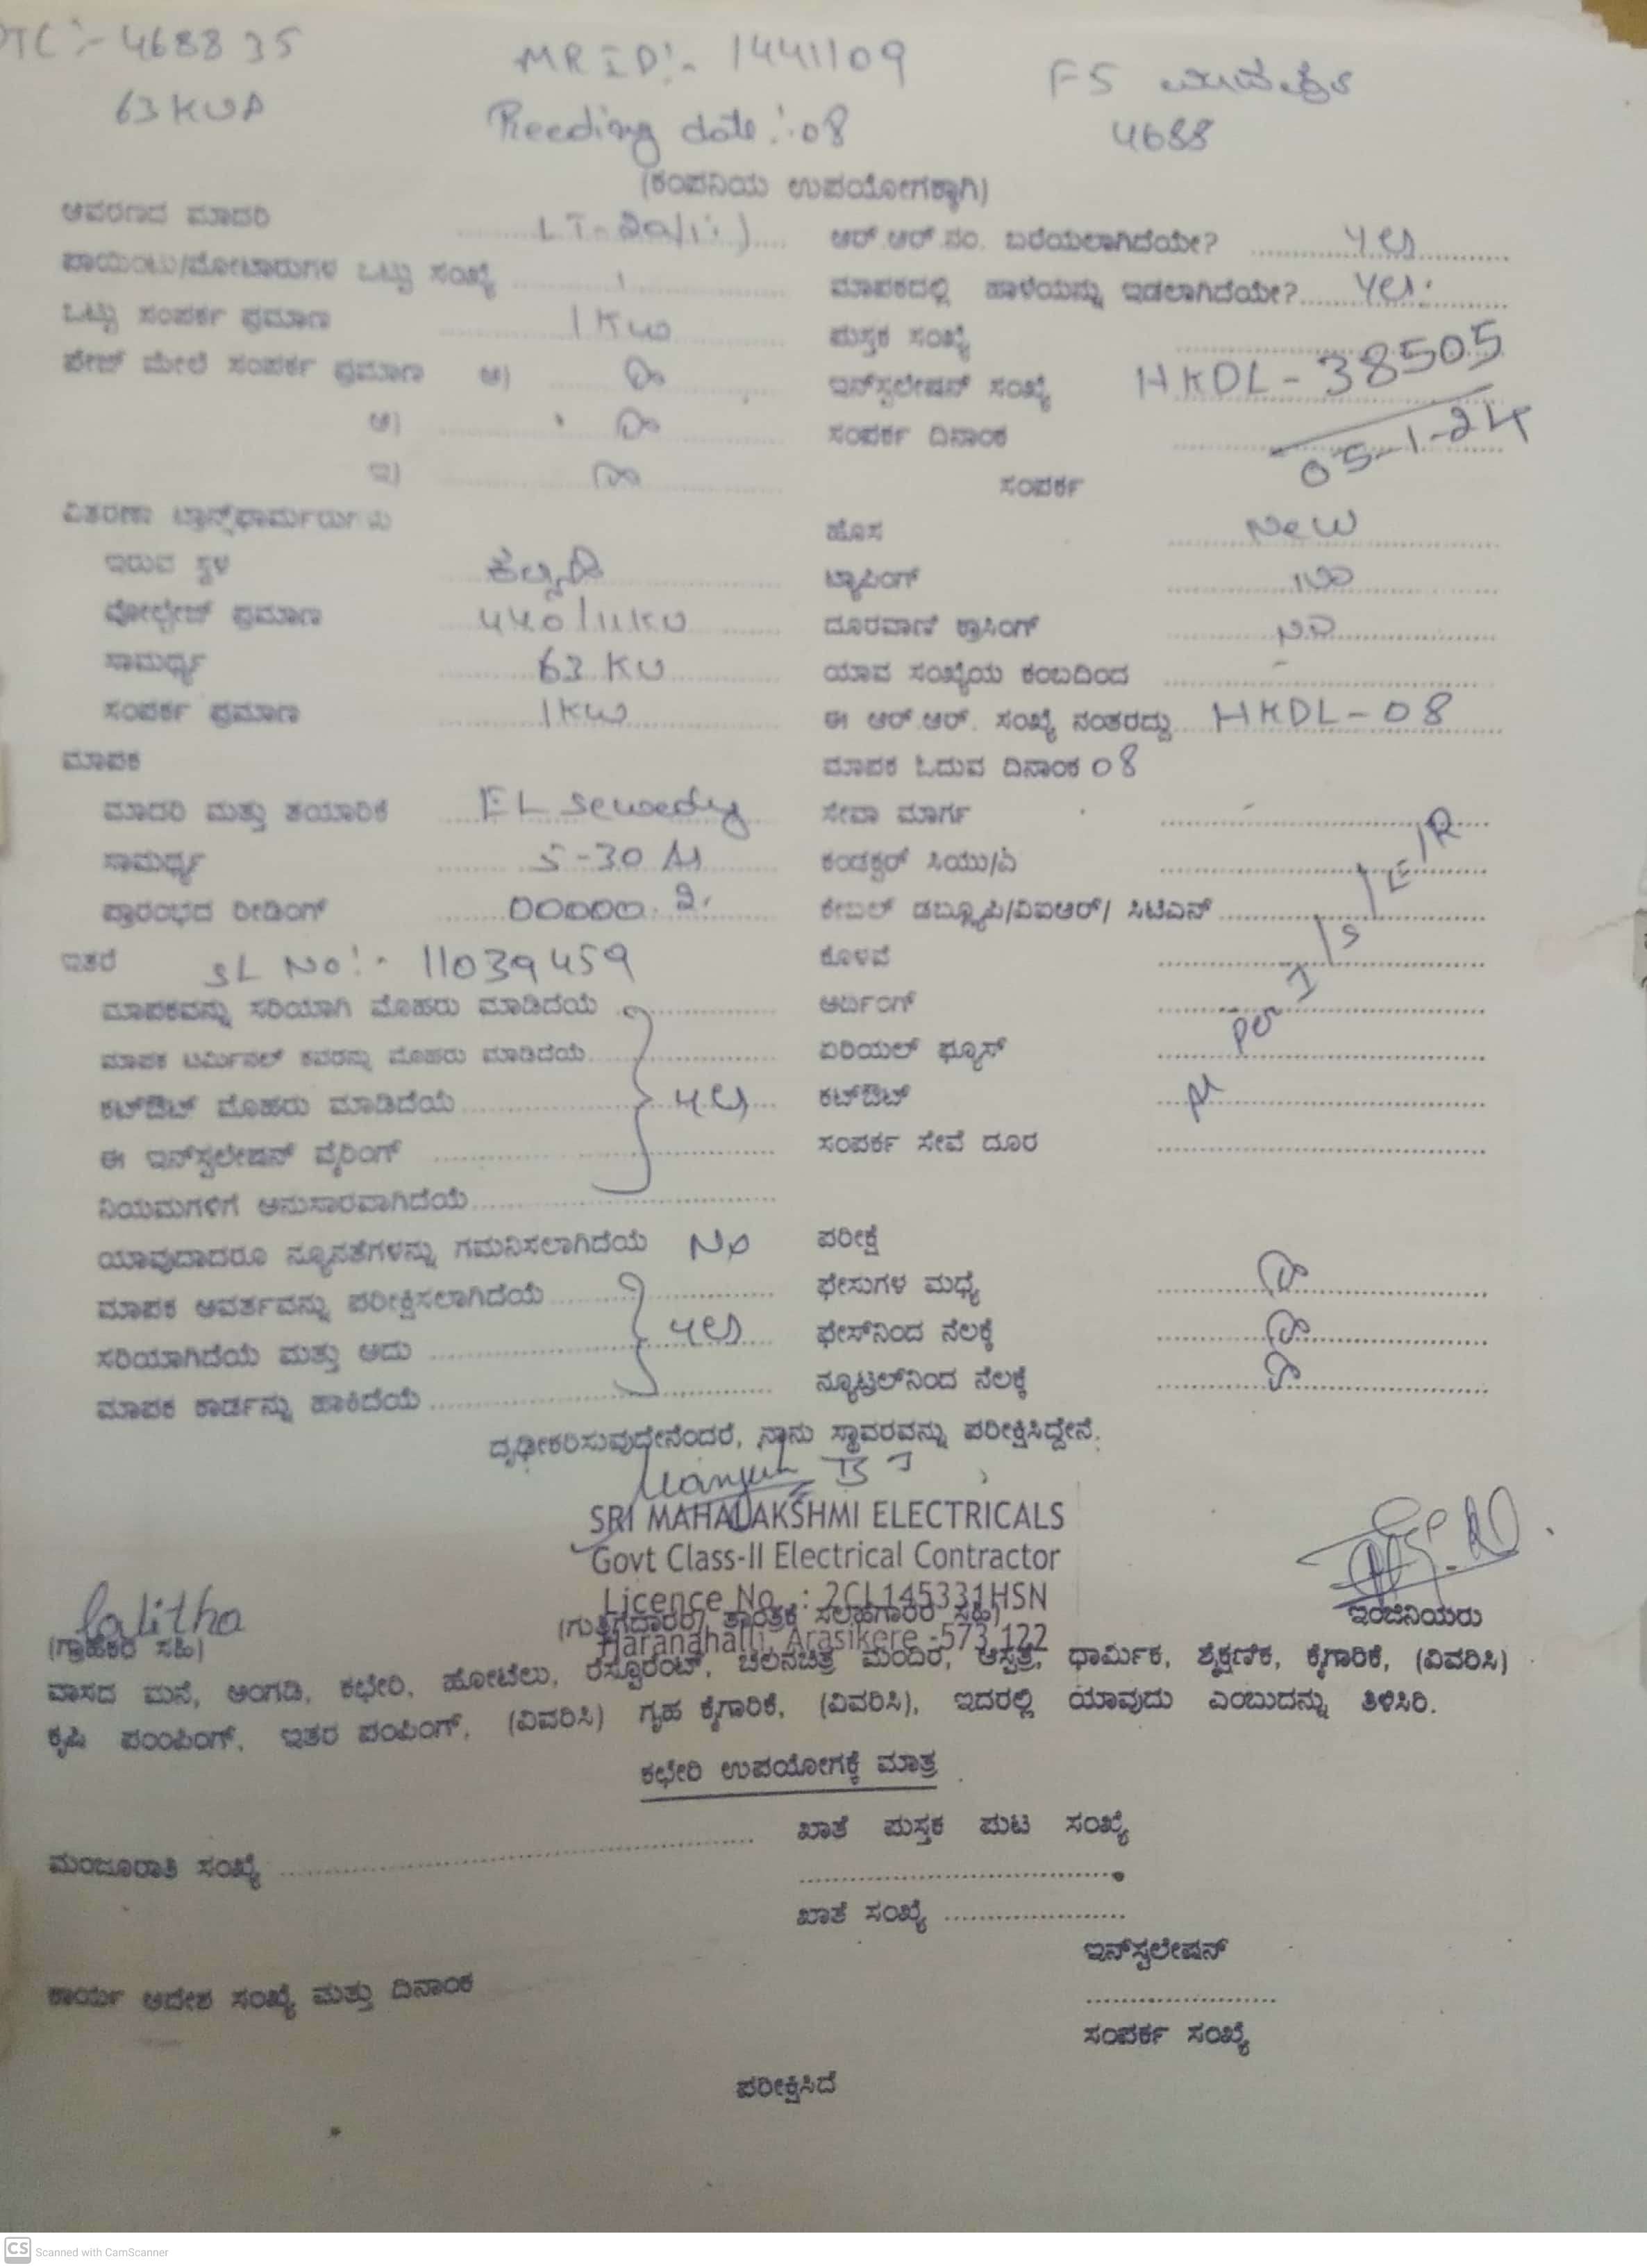 TC:- 468835
MR ID:- 1441109
F5
63 KVA
Reeding date:-08
4688
(ಕಂಪನಿಯ ಉಪಯೋಗಕ್ಕಾಗಿ)
ಆವರಣದ ಮಾದರಿ
ಆರ್.ಆರ್.ನಂ. ಬರೆಯಲಾಗಿದೆಯೇ? yes
ಪಾಯಿಂಟು/ಮೋಟಾರುಗಳ ಒಟ್ಟು ಸಂಖ್ಯೆ 1
ಮಾಪಕದಲ್ಲಿ ಹಾಳೆಯನ್ನು ಇಡಲಾಗಿದೆಯೇ? yes
ಒಟ್ಟು ಸಂಪರ್ಕ ಪ್ರಮಾಣ 1 Kw
ಪುಸ್ತಕ ಸಂಖ್ಯೆ
ಪೇಜ್ ಮೇಲೆ ಸಂಪರ್ಕ ಪ್ರಮಾಣ ಅ)
ಇನ್‌ಸ್ಟಲೇಷನ್ ಸಂಖ್ಯೆ HKDL-38505
ಆ)
ಸಂಪರ್ಕ ದಿನಾಂಕ 05-1-24
ಇ)
ಸಂಪರ್ಕ
ವಿತರಣಾ ಟ್ರಾನ್ಸ್‌ಫಾರ್ಮರುಗಳು
ಹೊಸ New
ಇರುವ ಸ್ಥಳ
ಟ್ಯಾಪಿಂಗ್
ವೋಲ್ಟೇಜ್ ಪ್ರಮಾಣ 440/11KV
ದೂರವಾಣಿ ಕ್ರಾಸಿಂಗ್ NO
ಸಾಮರ್ಥ್ಯ 63 KV
ಯಾವ ಸಂಖ್ಯೆಯ ಕಂಬದಿಂದ -
ಸಂಪರ್ಕ ಪ್ರಮಾಣ 1Kw
ಈ ಆರ್.ಆರ್. ಸಂಖ್ಯೆ ನಂತರದ್ದು HKDL-08
ಮಾಪಕ
ಮಾಪಕ ಓದುವ ದಿನಾಂಕ 08
ಮಾದರಿ ಮತ್ತು ತಯಾರಿಕೆ EL Sewedy
ಸೇವಾ ಮಾರ್ಗ
ಸಾಮರ್ಥ್ಯ 5-30 A
ಕಂಡಕ್ಟರ್ ಸಿಯು/ಎ
ಪ್ರಾರಂಭದ ರೀಡಿಂಗ್
ಕೇಬಲ್ ಡಬ್ಲ್ಯೂಪಿ/ವಿಐಆರ್/ ಸಿಟಿಎಸ್
ಇತರೆ SL No:- 11039459
ಕೊಳವೆ
ಮಾಪಕವನ್ನು ಸರಿಯಾಗಿ ಮೊಹರು ಮಾಡಿದೆಯೆ
ಅರ್ಥಿಂಗ್
ಮಾಪಕ ಟರ್ಮಿನಲ್ ಕವರನ್ನು ಮೊಹರು ಮಾಡಿದೆಯೆ
ಏರಿಯಲ್ ಫ್ಯೂಸ್
ಕಟ್‌ಔಟ್ ಮೊಹರು ಮಾಡಿದೆಯೆ yes
ಕಟ್‌ಔಟ್
ಈ ಇನ್‌ಸ್ಟಲೇಷನ್ ವೈರಿಂಗ್
ಸಂಪರ್ಕ ಸೇವೆ ದೂರ
ನಿಯಮಗಳಿಗೆ ಅನುಸಾರವಾಗಿದೆಯೆ
ಯಾವುದಾದರೂ ನ್ಯೂನತೆಗಳನ್ನು ಗಮನಿಸಲಾಗಿದೆಯೆ No
ಪರೀಕ್ಷೆ
ಮಾಪಕ ಆವರ್ತವನ್ನು ಪರೀಕ್ಷಿಸಲಾಗಿದೆಯೆ
ಫೇಸುಗಳ ಮಧ್ಯೆ
ಸರಿಯಾಗಿದೆಯೆ ಮತ್ತು ಅದು yes
ಫೇಸ್‌ನಿಂದ ನೆಲಕ್ಕೆ
ಮಾಪಕ ಕಾರ್ಡನ್ನು ಹಾಕಿದೆಯೆ
ನ್ಯೂಟ್ರಲ್‌ನಿಂದ ನೆಲಕ್ಕೆ
ದೃಢೀಕರಿಸುವುದೇನೆಂದರೆ, ನಾನು ಸ್ಥಾವರವನ್ನು ಪರೀಕ್ಷಿಸಿದ್ದೇನೆ.
SRI MAHALAKSHMI ELECTRICALS
Govt Class-II Electrical Contractor
Licence No. : 2CL145331HSN
Lalitha
(ಗುತ್ತಿಗೆದಾರರ/ ತಾಂತ್ರಿಕ ಸಲಹೆಗಾರರ ಸಹಿ)
ಇಂಜಿನಿಯರು
(ಗ್ರಾಹಕರ ಸಹಿ)
Haranahalli, Arasikere -573 122
ವಾಸದ ಮನೆ, ಅಂಗಡಿ, ಕಛೇರಿ, ಹೋಟೆಲು, ರೆಸ್ಟೂರೆಂಟ್, ಚಲನಚಿತ್ರ ಮಂದಿರ, ಆಸ್ಪತ್ರೆ, ಧಾರ್ಮಿಕ, ಶೈಕ್ಷಣಿಕ, ಕೈಗಾರಿಕೆ, (ವಿವರಿಸಿ)
ಕೃಷಿ ಪಂಪಿಂಗ್, ಇತರ ಪಂಪಿಂಗ್, (ವಿವರಿಸಿ) ಗೃಹ ಕೈಗಾರಿಕೆ, (ವಿವರಿಸಿ), ಇದರಲ್ಲಿ ಯಾವುದು ಎಂಬುದನ್ನು ತಿಳಿಸಿರಿ.
ಕಛೇರಿ ಉಪಯೋಗಕ್ಕೆ ಮಾತ್ರ
ಖಾತೆ ಪುಸ್ತಕ ಪುಟ ಸಂಖ್ಯೆ
ಮಂಜೂರಾತಿ ಸಂಖ್ಯೆ
ಖಾತೆ ಸಂಖ್ಯೆ
ಇನ್‌ಸ್ಟಲೇಷನ್
ಕಾರ್ಯ ಆದೇಶ ಸಂಖ್ಯೆ ಮತ್ತು ದಿನಾಂಕ
ಸಂಪರ್ಕ ಸಂಖ್ಯೆ
ಪರೀಕ್ಷಿಸಿದೆ
CS Scanned with CamScanner